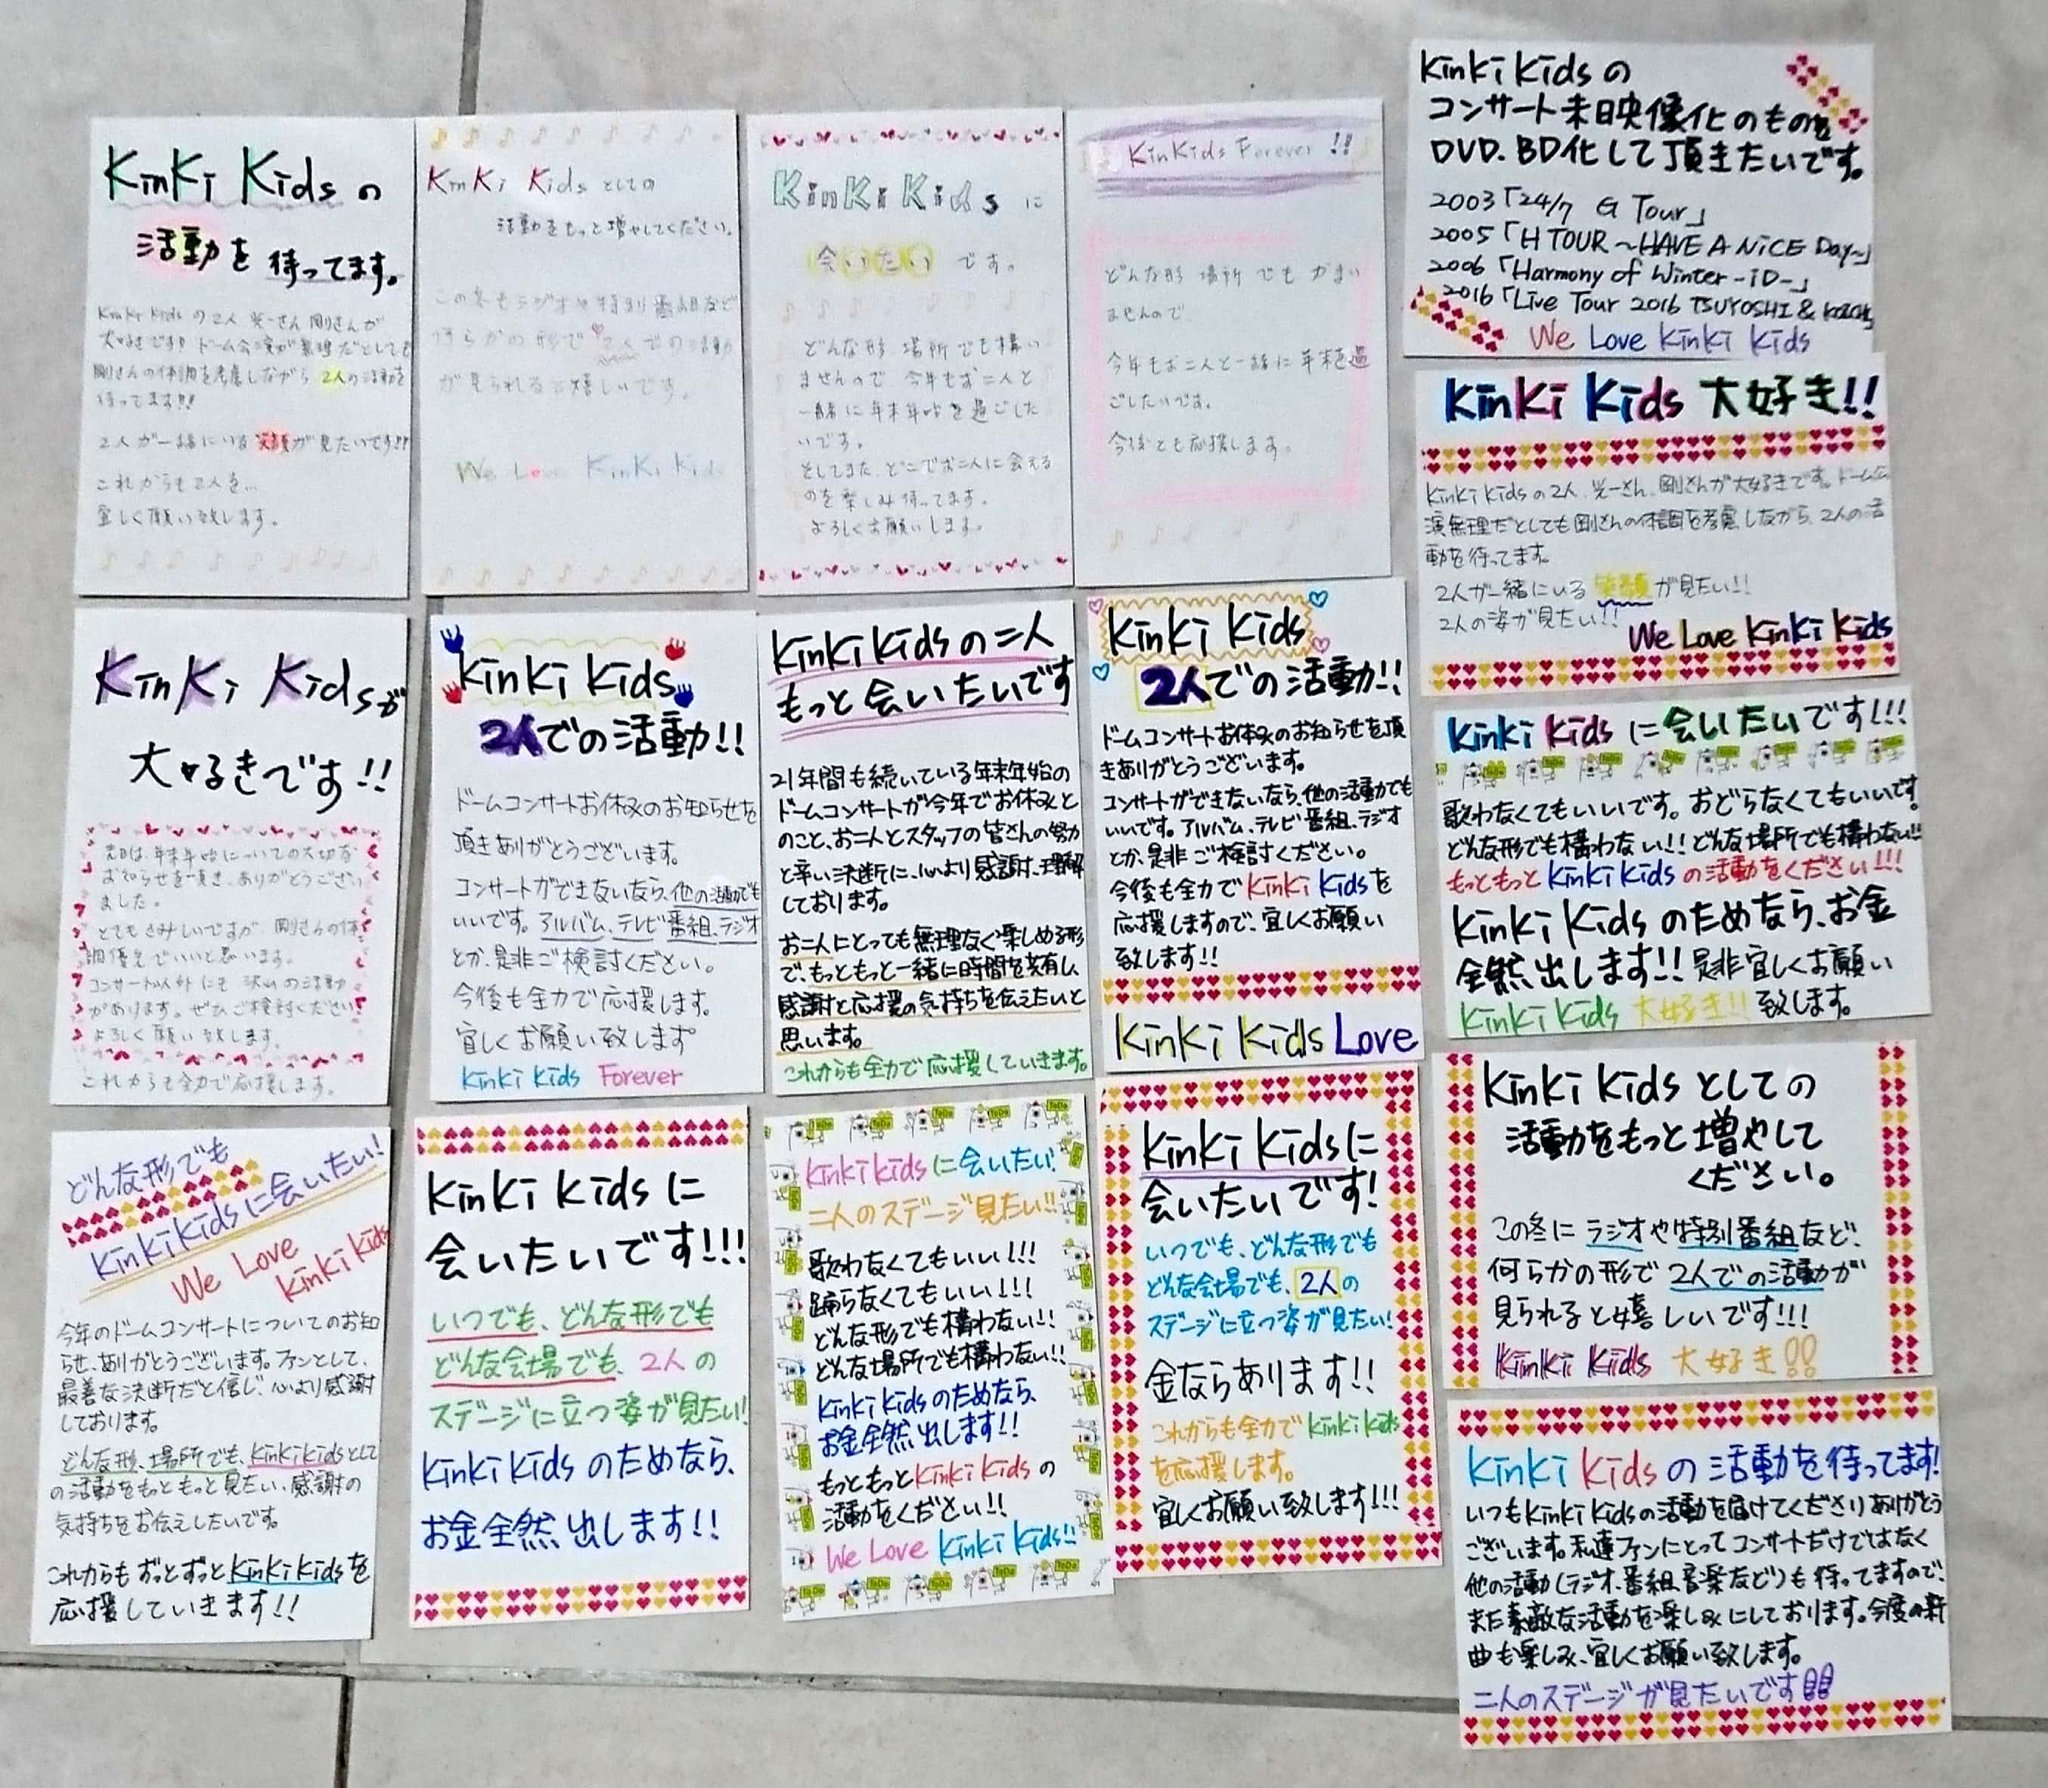 KinKi Kidsの
活動を待ってます。
KinKi Kidsの2人 光一さん 剛さんが
大好きです!! ドーム公演が無理だとしても
剛さんの体調を考慮しながら 2人の活動を
待ってます!!
2人が一緒にいる笑顔が見たいです!!
これからも2人を…
宜しく願い致します。
KinKi Kidsとしての
活動をもっと増やしてください。
この冬もラジオや特別番組など
何らかの形で2人での活動
が見られると嬉しいです。
We Love KinKi Kids
KinKi Kidsに
会いたいです。
どんな形 場所でも構い
ませんので 今年もお二人と
一緒に年末年始を過ごした
いです。
そしてまた、どこでお二人に会える
のを楽しみ待ってます。
よろしくお願いします。
KinKids Forever!!
どんな形 場所でもかまい
ませんので、
今年もお二人と一緒に年末を過
ごしたいです。
今後とも応援します。
KinKi Kidsの
コンサート未映像化のものを
DVD、BD化して頂きたいです。
2003「24/7 G Tour」
2005「H TOUR ~HAVE A NiCE Day~」
2006「Harmony of Winter -iD-」
2016「Live Tour 2016 TSUYOSHI &
We Love KinKi Kids
KinKi Kids 大好き!!
KinKi Kidsの2人、光一さん、剛さんが大好きです。ドーム公
演無理だとしても剛さんの体調を考慮しながら、2人の活
動を待ってます。
2人が一緒にいる笑顔が見たい!!
2人の姿が見たい!!
We Love KinKi Kids
KinKi Kidsが
大好きです!!
先日は、年末年始についての大切な
お知らせを頂き、ありがとうござい
ました。
とてもさみしいですが、剛さんの体
調優先でいいと思います。
コンサート以外にも 沢山の活動
があります。ぜひご検討ください!
よろしく願い致します。
これからも全力で応援します。
KinKi Kids
2人での活動!!
ドームコンサートお休みのお知らせを
頂きありがとうございます。
コンサートができないなら、他の活動でも
いいです。アルバム、テレビ番組、ラジオ
とか、是非ご検討ください。
今後も全力で応援します。
宜しくお願い致します。
KinKi Kids Forever
KinKi Kidsの二人
もっと会いたいです
21年間も続いている年末年始の
ドームコンサートが今年でお休みと
のこと、お二人とスタッフの皆さんの努力
と辛い決断に、心より感謝、理解
しております。
お二人にとっても無理なく楽しめる形
で、もっともっと一緒に時間を共有し、
感謝と応援の気持ちを伝えたいと
思います。
これからも全力で応援していきます。
KinKi Kids
2人での活動!!
ドームコンサートお休みのお知らせを頂
きありがとうございます。
コンサートができないなら、他の活動でも
いいです。アルバム、テレビ番組、ラジオ
とか、是非ご検討ください。
今後も全力でKinKi Kidsを
応援しますので、宜しくお願い
致します!!
KinKi Kids Love
KinKi Kidsに会いたいです!!!
歌わなくてもいいです。おどらなくてもいいです。
どんな形でも構わない!! どんな場所でも構わない!!
もっともっとKinKi Kidsの活動をください!!!
KinKi Kidsのためなら、お金
全然出します!! 是非宜しくお願い
KinKi Kids 大好き!! 致します。
どんな形でも
KinKi Kidsに会いたい!
We Love
KinKi Kids
今年のドームコンサートについてのお知
らせ、ありがとうございます。ファンとして、
最善な決断だと信じ、心より感謝
しております。
どんな形、場所でも、KinKi Kidsとして
の活動をもっともっと見たい、感謝の
気持ちをお伝えしたいです。
これからもずっとずっとKinKi Kidsを
応援していきます!!
KinKi Kidsに
会いたいです!!!
いつでも、どんな形でも
どんな会場でも、2人の
ステージに立つ姿が見たい!
KinKi Kidsのためなら、
お金全然出します!!
KinKi Kidsに会いたい!
二人のステージ見たい!!
歌わなくてもいい!!!
踊らなくてもいい!!!
どんな形でも構わない!!
どんな場所でも構わない!!
KinKi Kidsのためなら、
お金全然出します!!
もっともっとKinKi Kidsの
活動をください!!
We Love KinKi Kids!!
KinKi Kidsに
会いたいです!
いつでも、どんな形でも
どんな会場でも、2人の
ステージに立つ姿が見たい!
金ならあります!!
これからも全力でKinKi Kids
を応援します。
宜しくお願い致します!!!
KinKi Kidsとしての
活動をもっと増やして
ください。
この冬にラジオや特別番組など、
何らかの形で2人での活動が
見られると嬉しいです!!!
KinKi Kids 大好き!!
KinKi Kidsの活動を待ってます!
いつもKinKi Kidsの活動を届けてくださりありがとう
ございます。私達ファンにとってコンサートだけではなく
他の活動(ラジオ、番組、音楽など)も待ってますので、
また素敵な活動を楽しみにしております。今度の新
曲も楽しみ、宜しくお願い致します。
二人のステージが見たいです!!